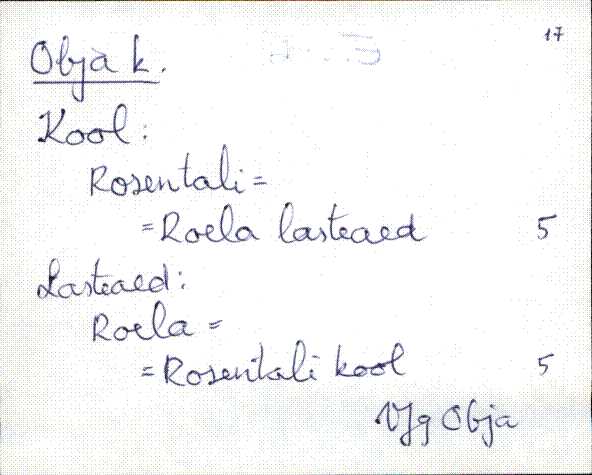 17
Obja k.
Kool:
Rosentali =
= Roela lasteaed 5
Lasteaed:
Roela =
= Rosentali kool 5
VJg Obja